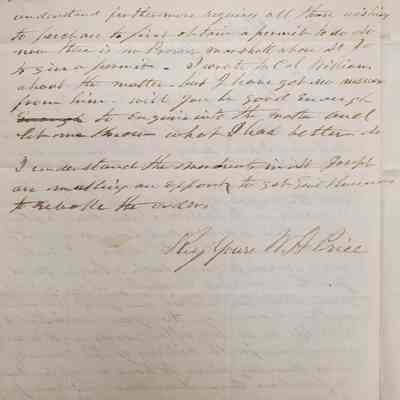 understand furthermore requires all those wishing
to purchase to first obtain a permit to do so
now there is no Provo marshall above St Jo
to give a permit - I wrote to Col Williams
about the matter - but I have got no answer
from him - will you be good enough
to enquire into the matter and
let me know what I had better do
I understand the merchants in St Joseph
are making an effort to get Genl
to the orders
Resy Yours W A Price